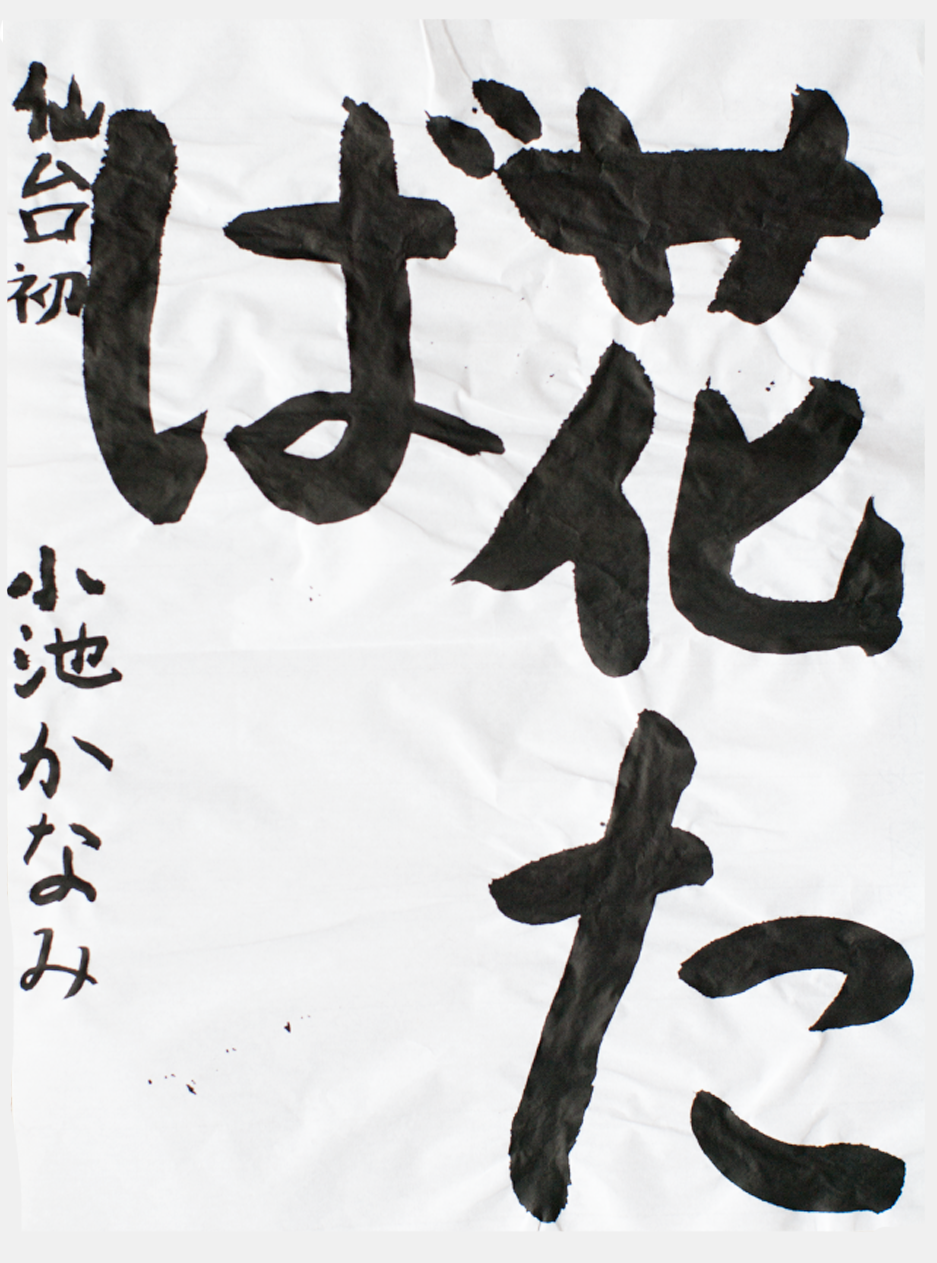 花た
ば
仙台初 小池かなみ